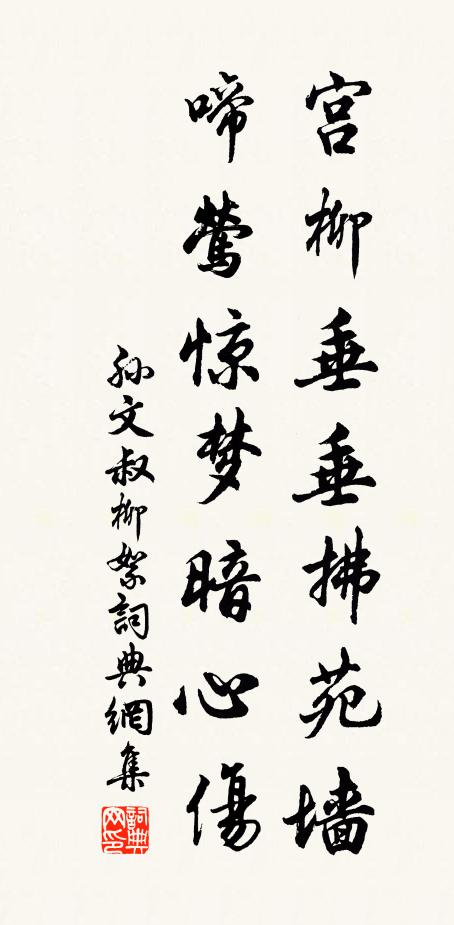 宫柳垂垂拂苑墙
啼莺惊梦暗心傷
孙文叔柳絮詞典網集
詞典网印